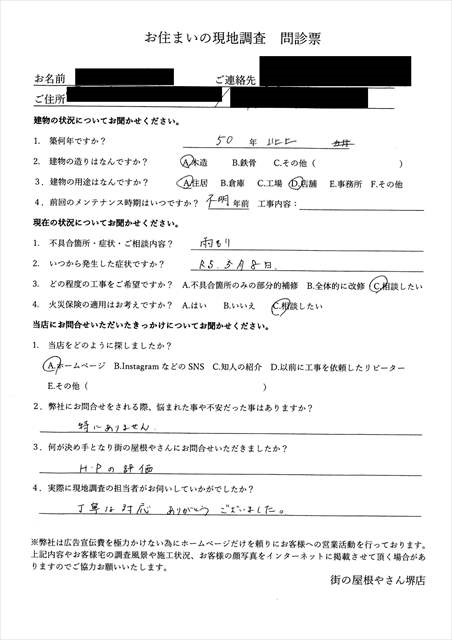 お住まいの現地調査 問診票
お名前
ご連絡先
ご住所
建物の状況についてお聞かせください。
1. 築何年ですか? 50 年 以上
2. 建物の造りはなんですか? A.木造 B.鉄骨 C.その他( )
3. 建物の用途はなんですか? A.住居 B.倉庫 C.工場 D.店舗 E.事務所 F.その他
4. 前回のメンテナンス時期はいつですか? 不明 年前 工事内容:
現在の状況についてお聞かせください。
1. 不具合箇所・症状・ご相談内容? 雨もり
2. いつから発生した症状ですか? R5.5月8日.
3. どの程度の工事をご希望ですか? A.不具合箇所のみの部分的補修 B.全体的に改修 C.相談したい
4. 火災保険の適用はお考えですか? A.はい B.いいえ C.相談したい
当店にお問合せいただいたきっかけについてお聞かせください。
1. 当店をどのように探しましたか?
A.ホームページ B.InstagramなどのSNS C.知人の紹介 D.以前に工事を依頼したリピーター
E.その他( )
2. 弊社にお問合せをされる際、悩まれた事や不安だった事はありますか?
特にありません.
3. 何が決め手となり街の屋根やさんにお問合せいただきましたか?
H・Pの評価
4. 実際に現地調査の担当者がお伺いしていかがでしたか?
丁寧な対応 ありがとうございました。
※弊社は広告宣伝費を極力かけない為にホームページだけを頼りにお客様への営業活動を行っております。
上記内容やお客様宅の調査風景や施工状況、お客様の顔写真をインターネットに掲載させて頂く場合があ
りますのでご協力お願いいたします。
街の屋根やさん堺店